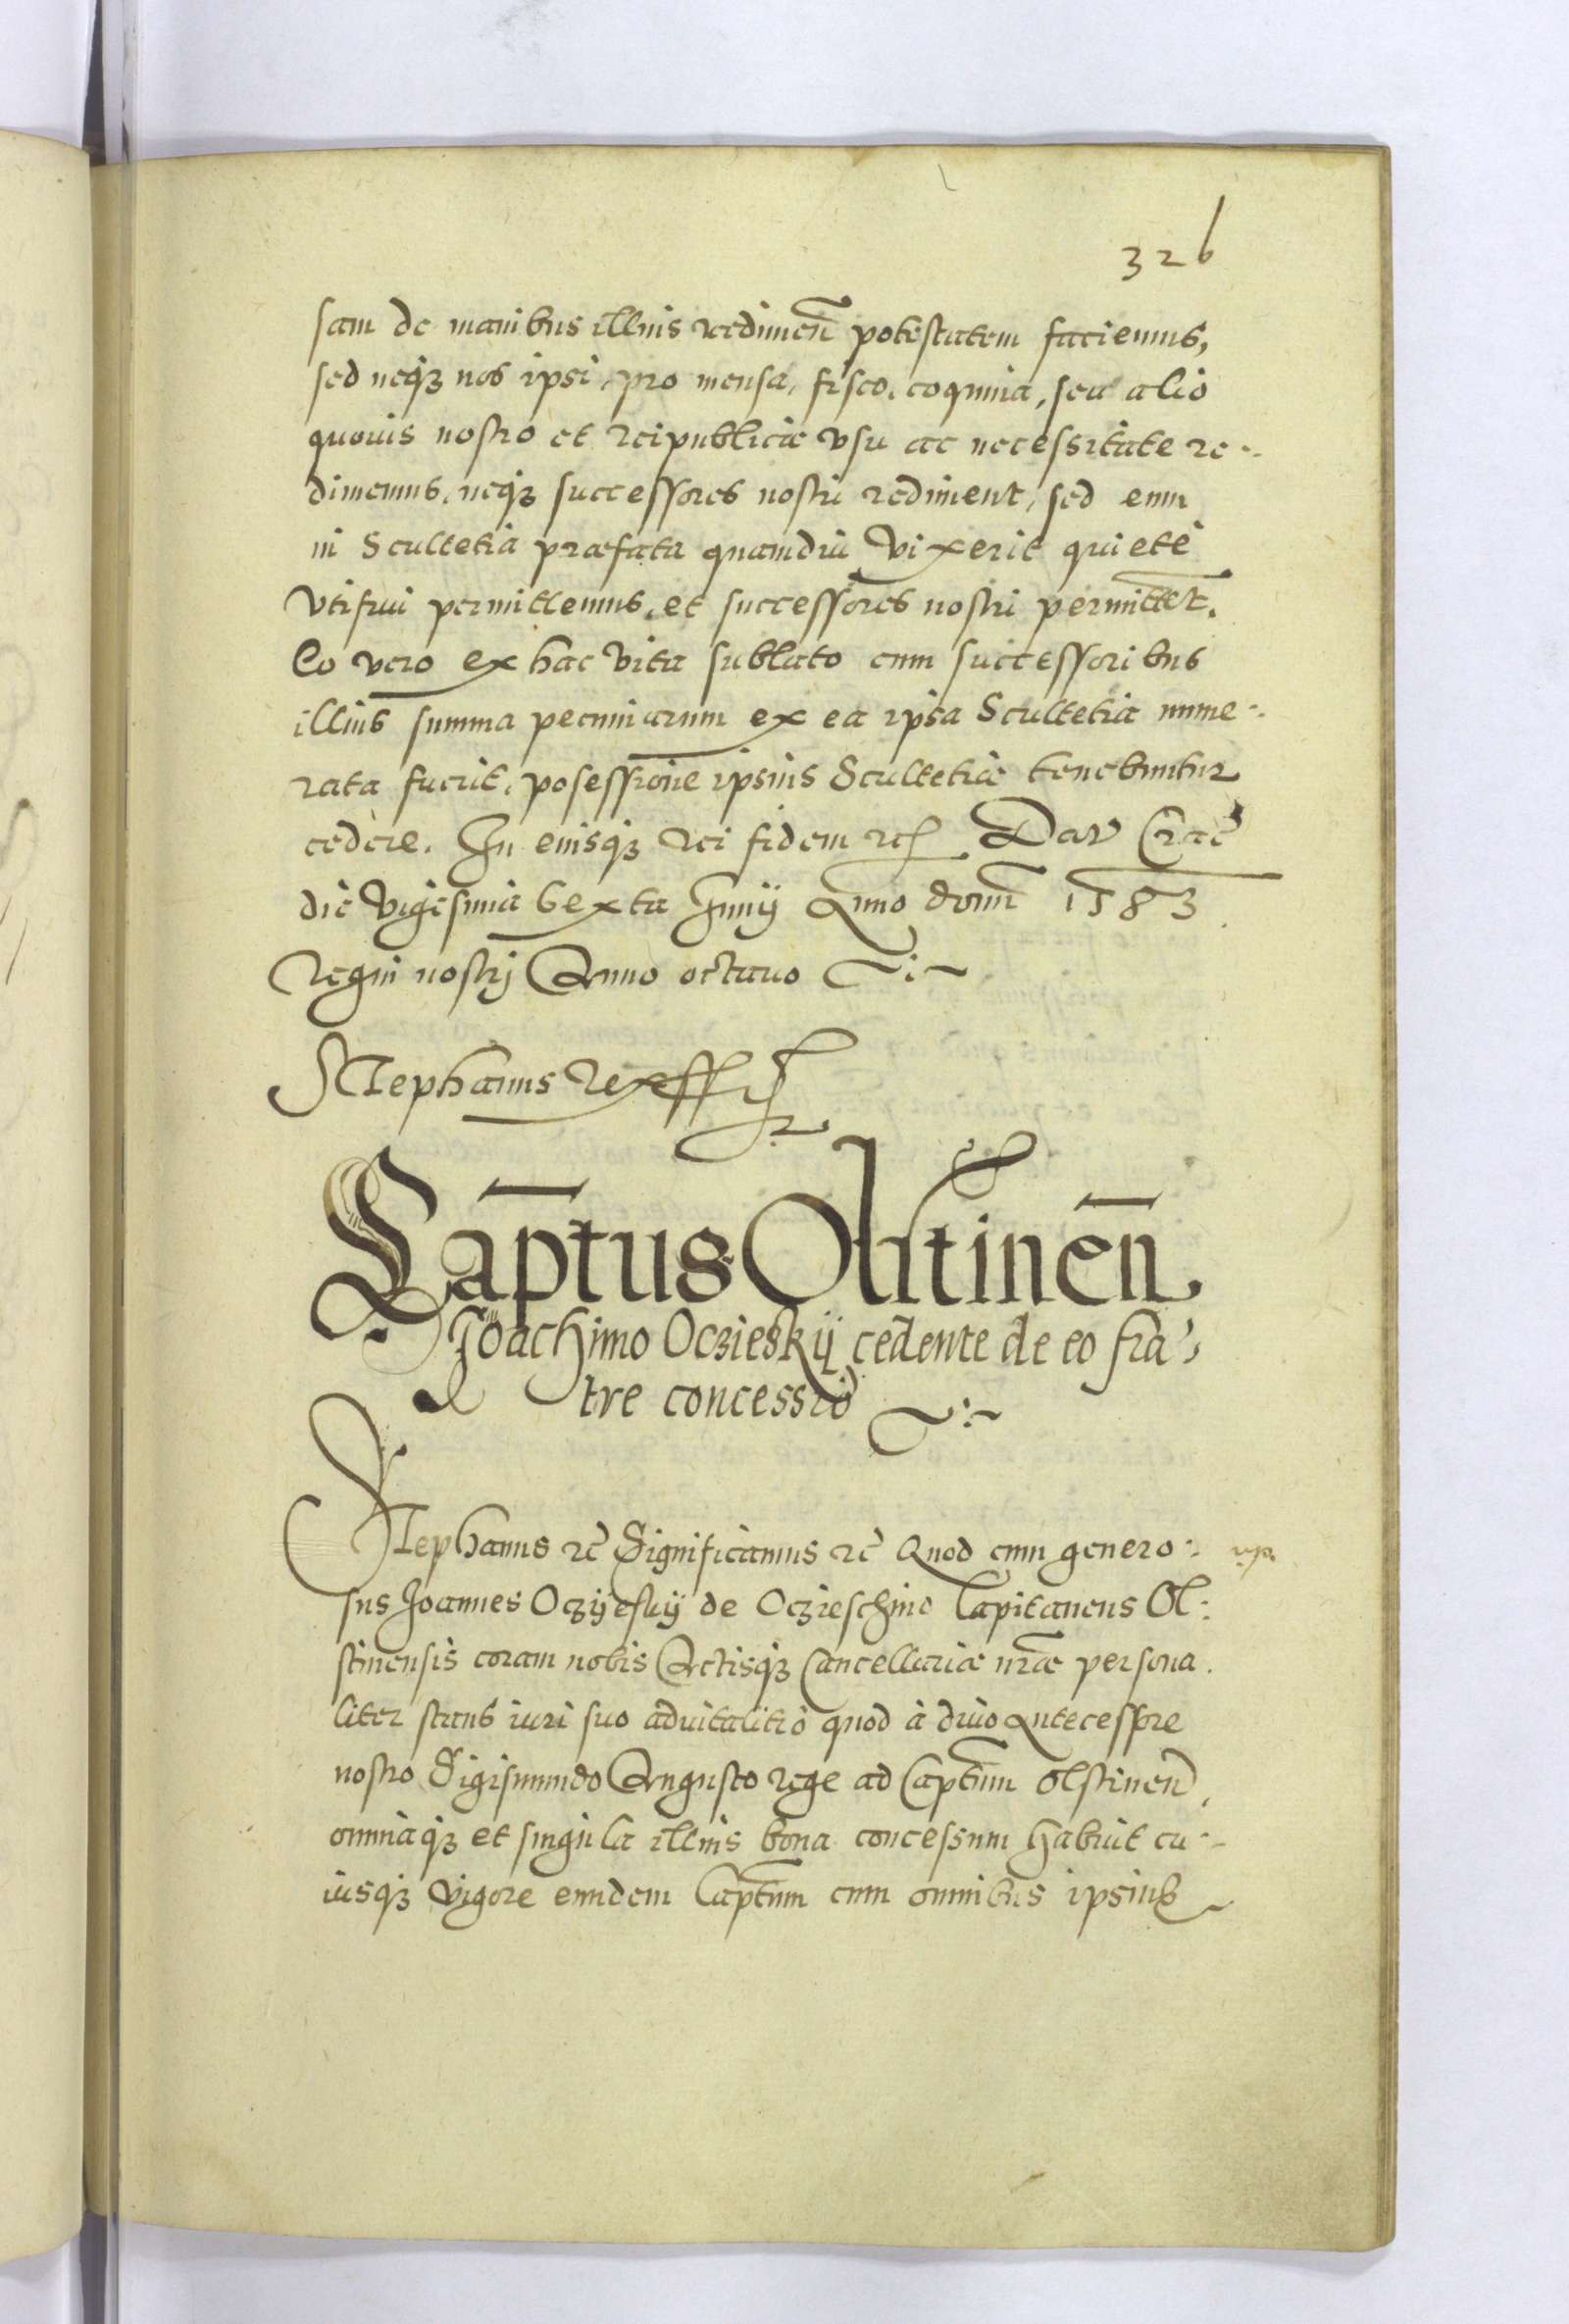 326
sam de manibus illius redimen̄ potestatem faciemus,
sed neqȝ nos ipsi, pro mensa, fisco, coquina, seu alio
quouis nostro et reipublicæ vsu ac necessitate re-
dimemus, neqȝ successores nostri rediment, sed eum
in Scultetia præfata quamdiu vixerit quietè
vtifrui permittemus, et successores nostri permittēt.
Eo vero ex hac vita sublato cum successoribus
illius summa pecuniarum ex ea ipsa Scultetia nume-
rata fuerit, posessione ipsius Scultetiæ tenebuntur
cedere. In euisqȝ rei fidem etc Dat Crac̄
die vigesima Sexta Junij Anno domī 1583
Regni nostrj Anno octauo
Stephanus Rex ssst
Cap̄tus Olstinen̄
Joachimo Oczieskij cedente de eo fra-
tre concessio
Stephanus etc̄ Significamus etc̄ Quod cum genero-
sus Joannes Oczijeskij de Oczieschino Capitaneus Ol-
stinensis coram nobis Actisqȝ Cancellariæ nr̄æ persona
liter stans iuri suo aduitalitio quod à diuo Antecessore
nostro Sigismundo Augusto rege ad Cap̄tum Olstinen̄,
omniaqȝ et singula illius bona concessum habuit cu-
iusqȝ vigore eundem Cap̄tum cum omnibus ipsius